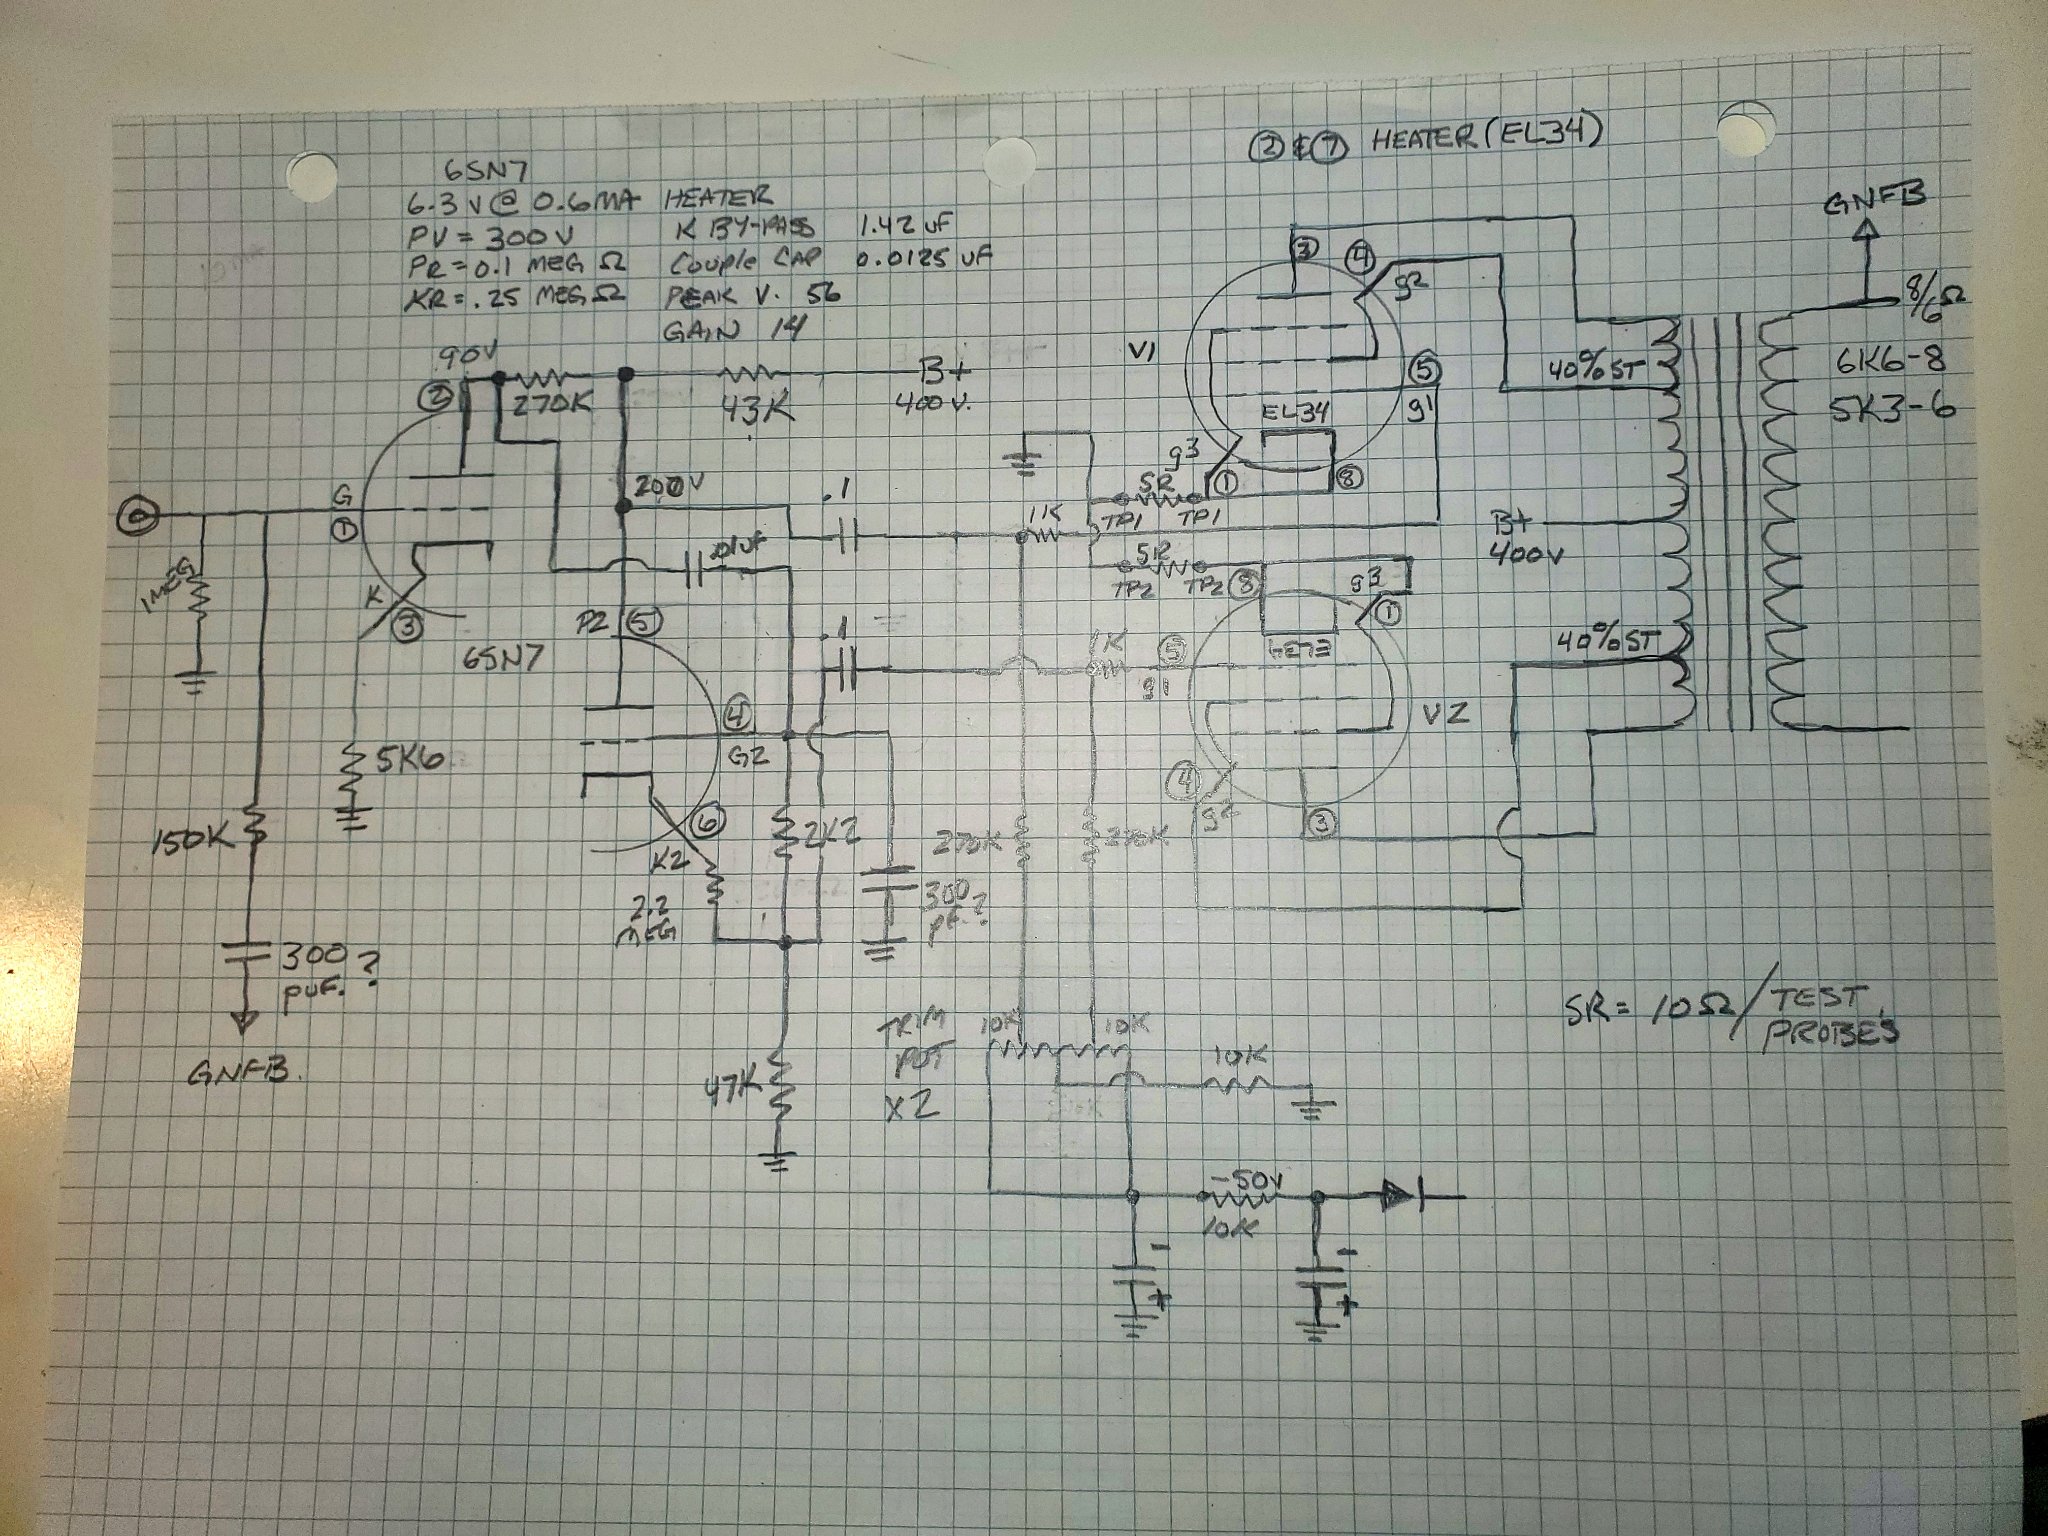 ② & ⑦ HEATER (EL34)
6SN7
6.3 V @ 0.6 MA HEATER
PV = 300 V K BY-PASS 1.42 uF
PR = 0.1 MEG Ω COUPLE CAP 0.0125 UF
KR = .25 MEG Ω PEAK V. 56
GAIN 14
GNFB
8/6Ω
6K6-8
5K3-6
90V
②
270K
43K
B+
400 V.
③
④
g2
V1
⑤
g1
EL34
g3
①
⑧
40% ST
G
①
1MEG
K
③
6SN7
200V
.1
.01uF
11K
SR
TP1 TP1
SR
TP2 TP2
⑧
g3
①
B+
400V
P2 ⑤
.1
1K
⑤
g1
EL34
40% ST
④
G2
V2
④
g2
③
5K6
150K
⑥
K2
2K2
2.2
MEG
270K
270K
300
PF.?
300
PUF. ?
GNFB.
47K
TRIM
POT
X2
10K 10K
10K
SR = 10Ω / TEST
PROBES
-50V
10K
-
+
-
+